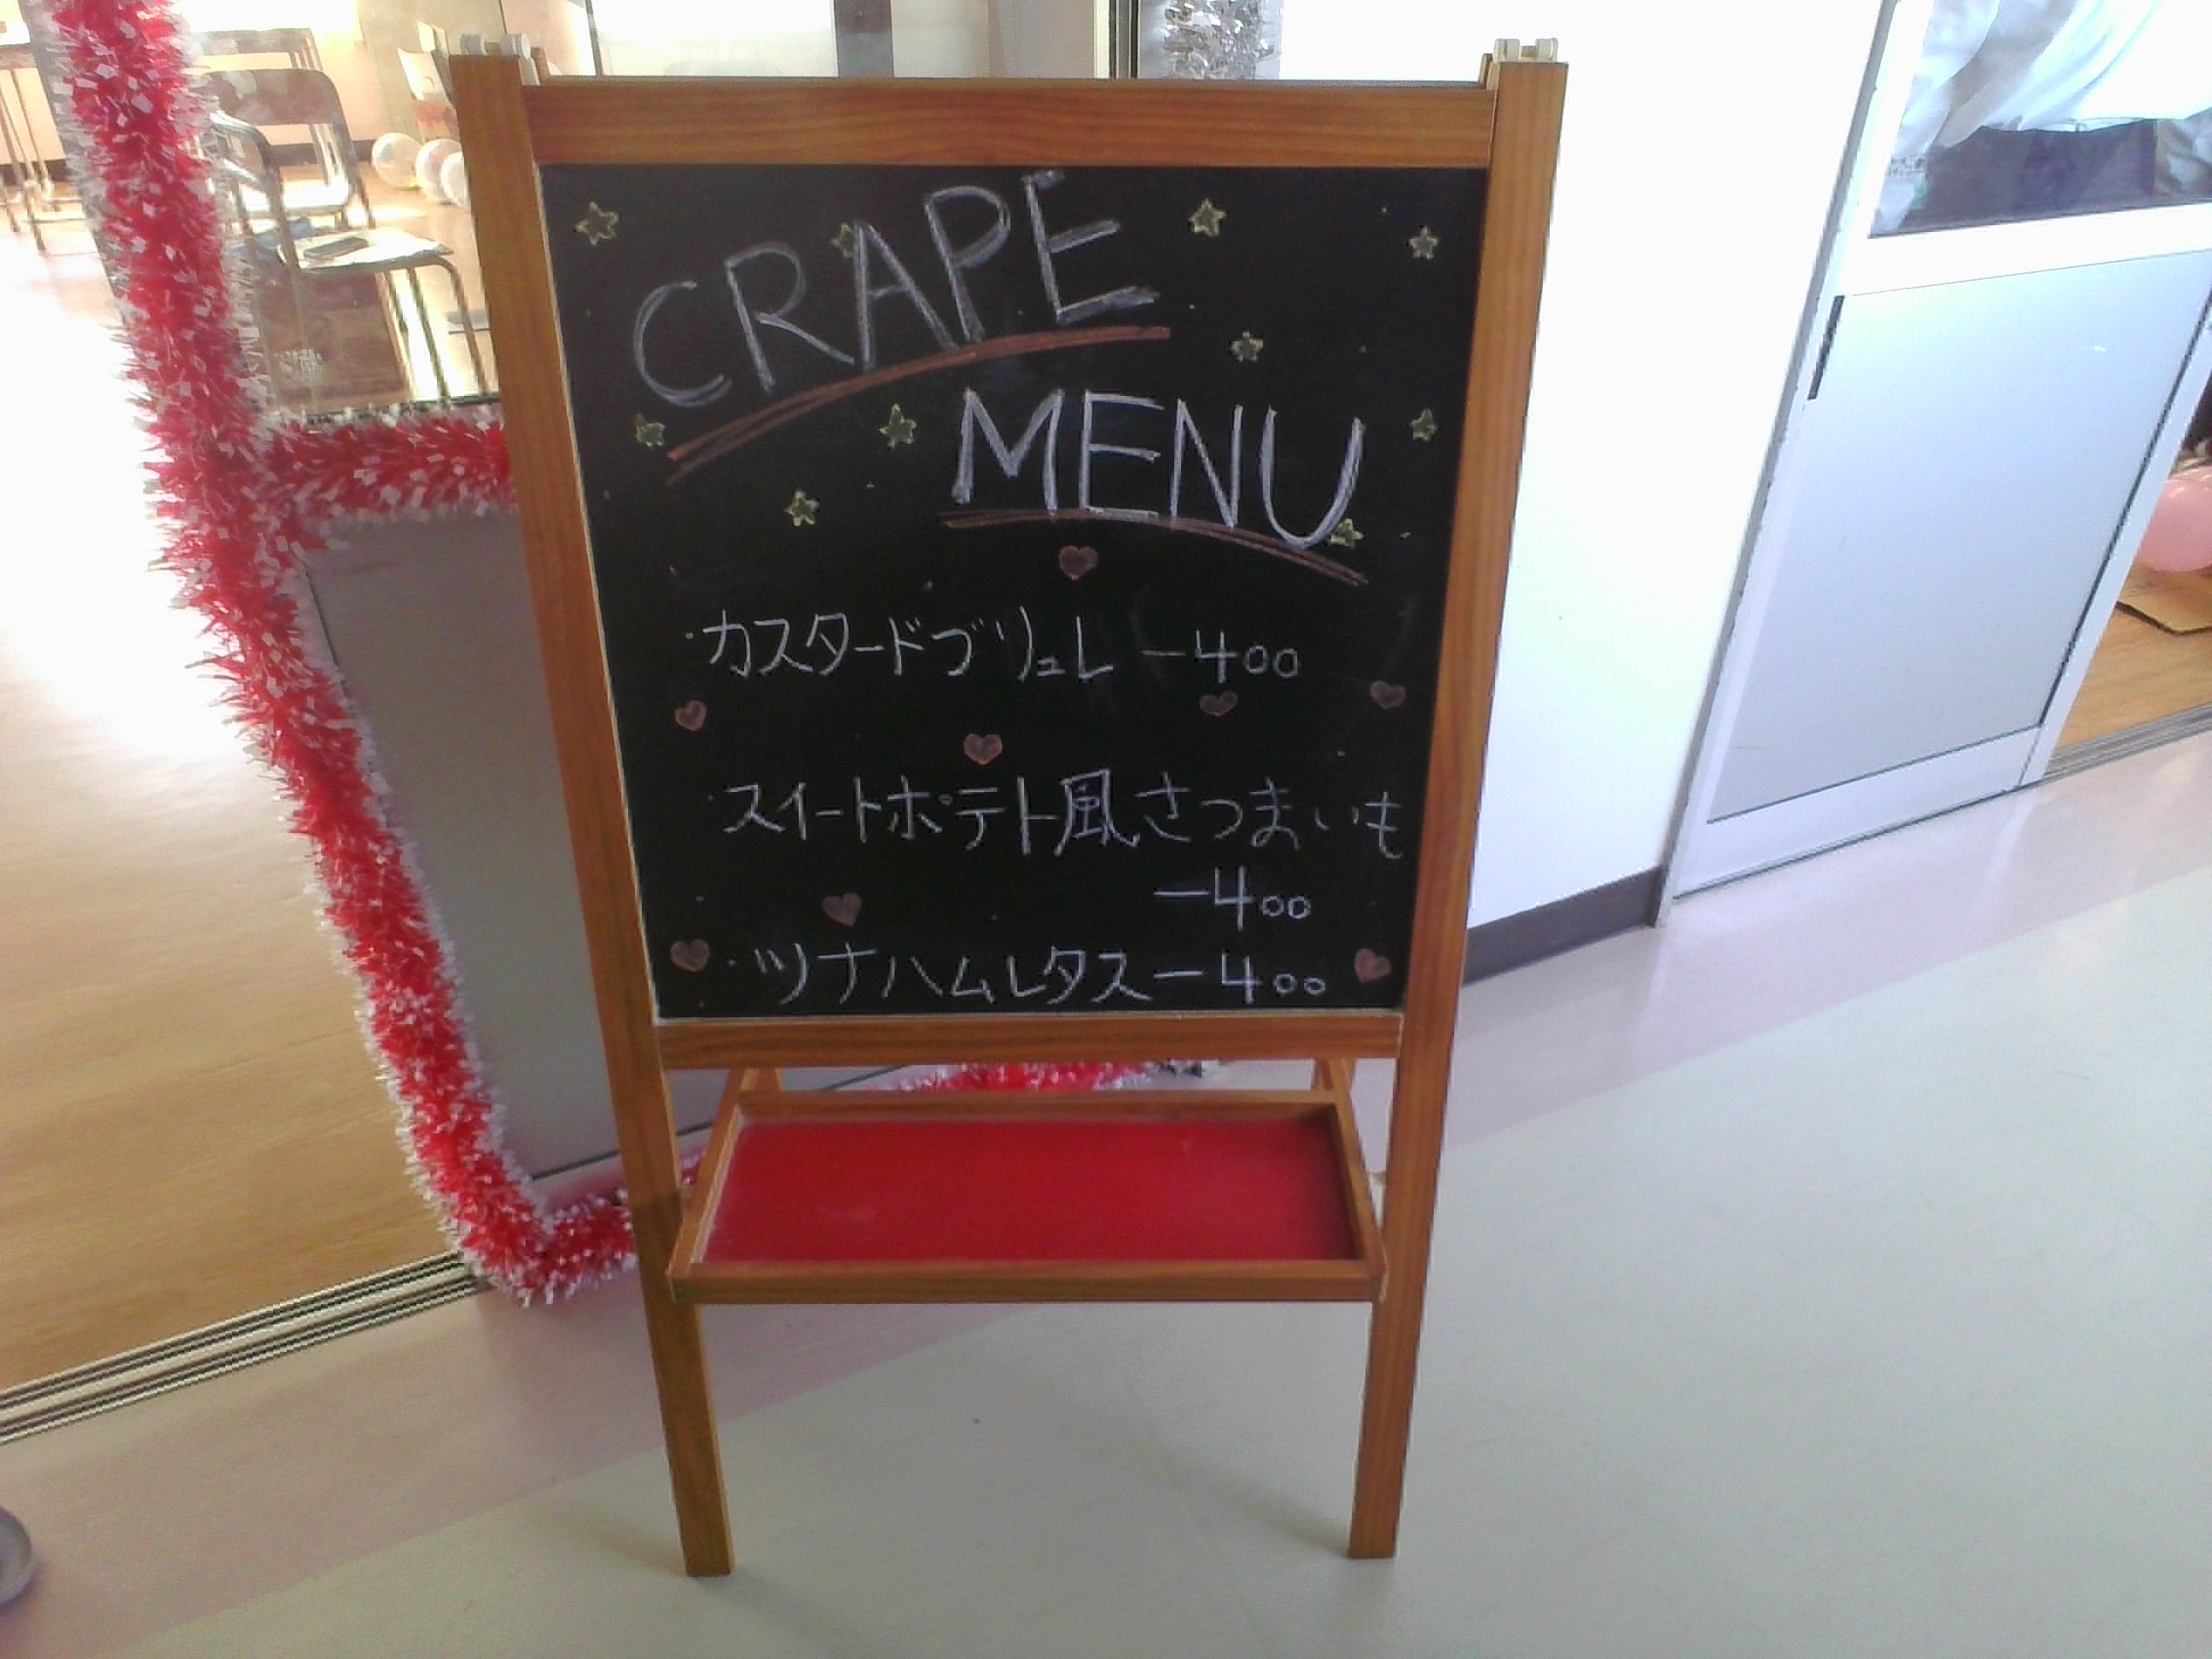 CRAPE
MENU
・カスタードブリュレ ー400
・スイートポテト風さつまいも
ー400
・ツナハムレタスー400